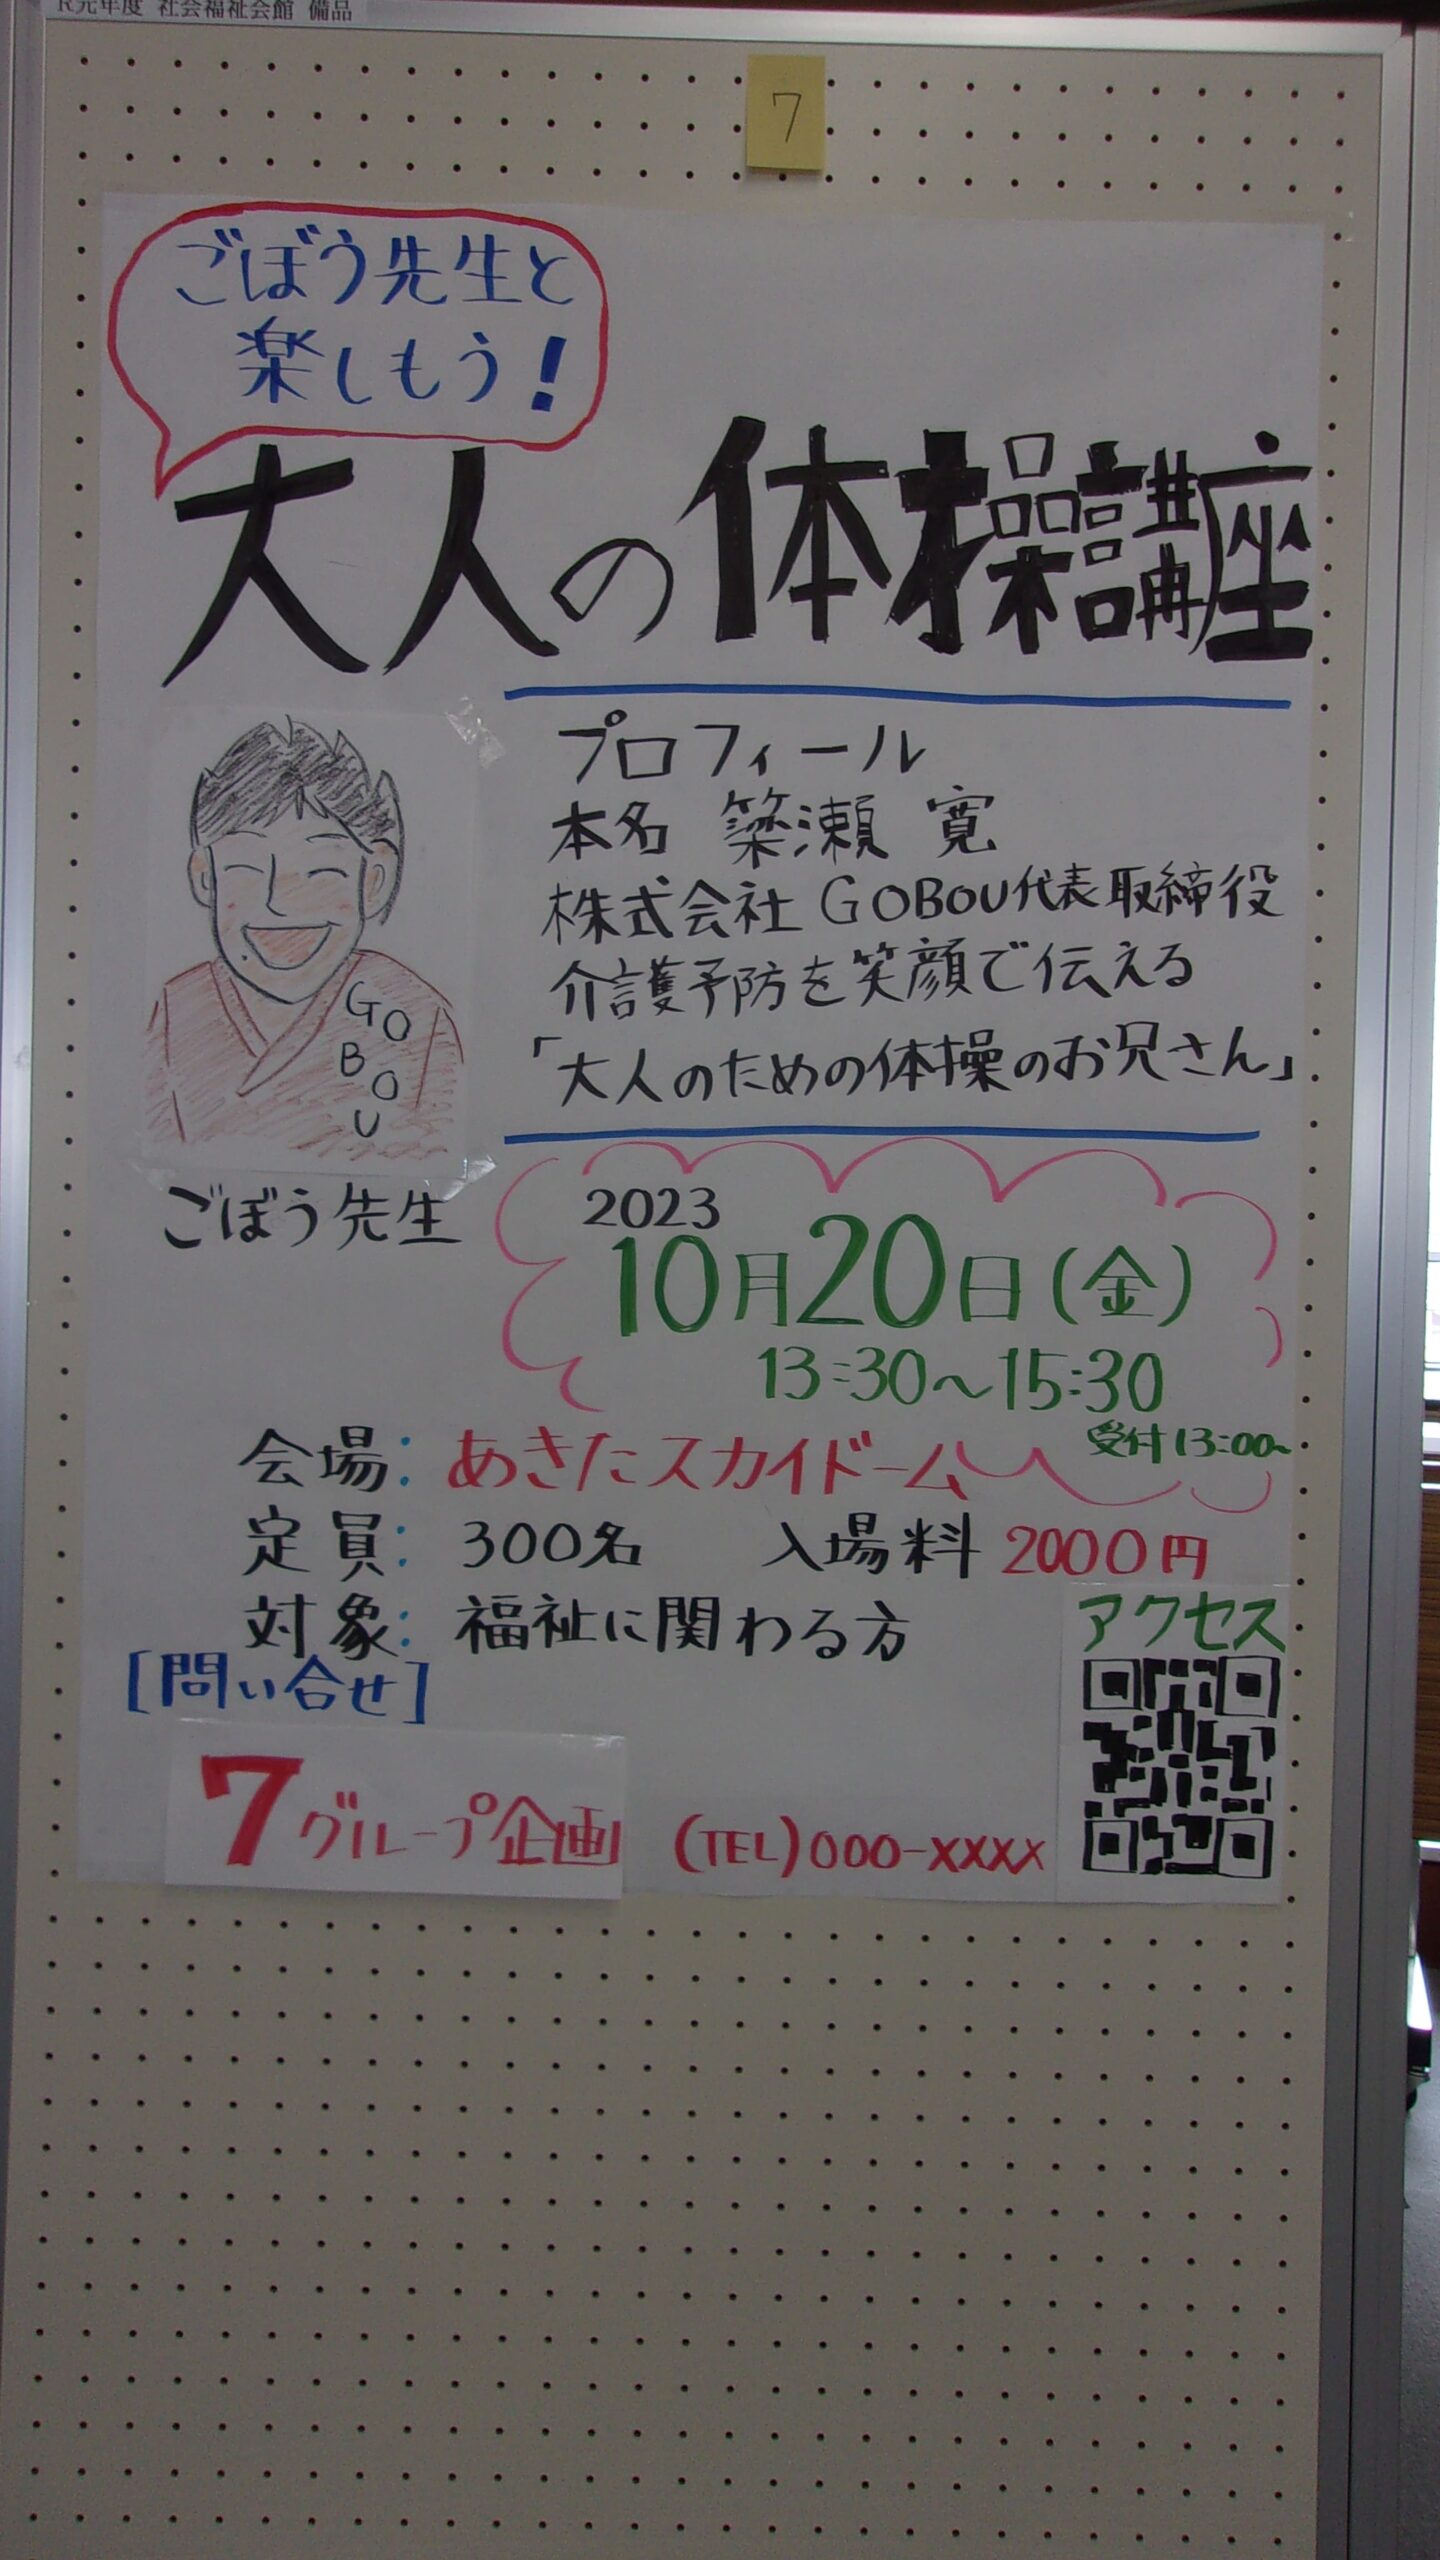 R元年度 社会福祉会館 備品
7
ごぼう先生と
楽しもう!
大人の体操講座
プロフィール
本名 簗瀬 寛
株式会社 GOBOU代表取締役
介護予防を笑顔で伝える
「大人のための体操のお兄さん」
GO
B
O
U
ごぼう先生
2023
10月20日(金)
13:30~15:30
受付13:00~
会場: あきたスカイドーム
定員: 300名 入場料 2000円
対象: 福祉に関わる方
アクセス
[問い合せ]
7グループ企画 (TEL)000-XXXX